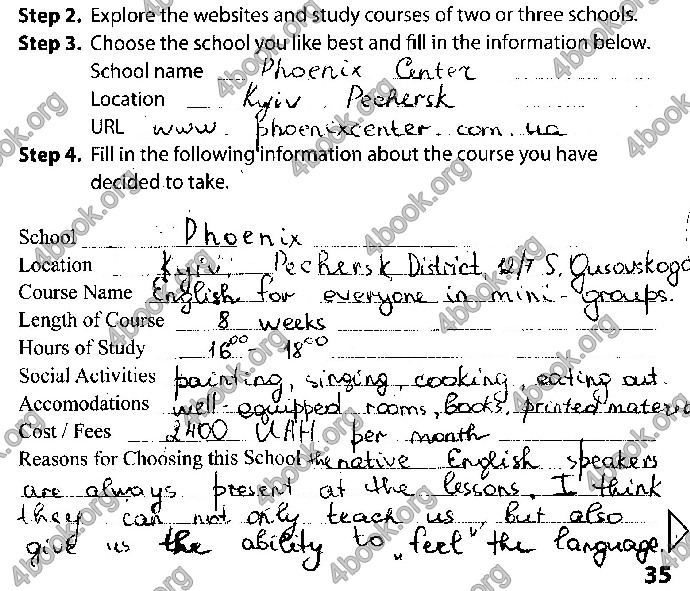 Step 2. Explore the websites and study courses of two or three schools.
Step 3. Choose the school you like best and fill in the information below.
School name Phoenix Center
Location Kyiv Pechersk
URL www. phoenixcenter. com. ua
Step 4. Fill in the following information about the course you have
decided to take.
School Phoenix
Location Kyiv, Pechersk District, 12/7 S. Gusovskogo
Course Name English for everyone in mini-groups.
Length of Course 8 weeks
Hours of Study 16⁰⁰ - 18⁰⁰
Social Activities painting, singing, cooking, eating out.
Accomodations well-equipped rooms, books, printed materia
Cost / Fees 2400 UAH per month
Reasons for Choosing this School the native English speakers
are always present at the lessons. I think
they can not only teach us, but also
give us the ability to „feel" the language.
35
4book.org